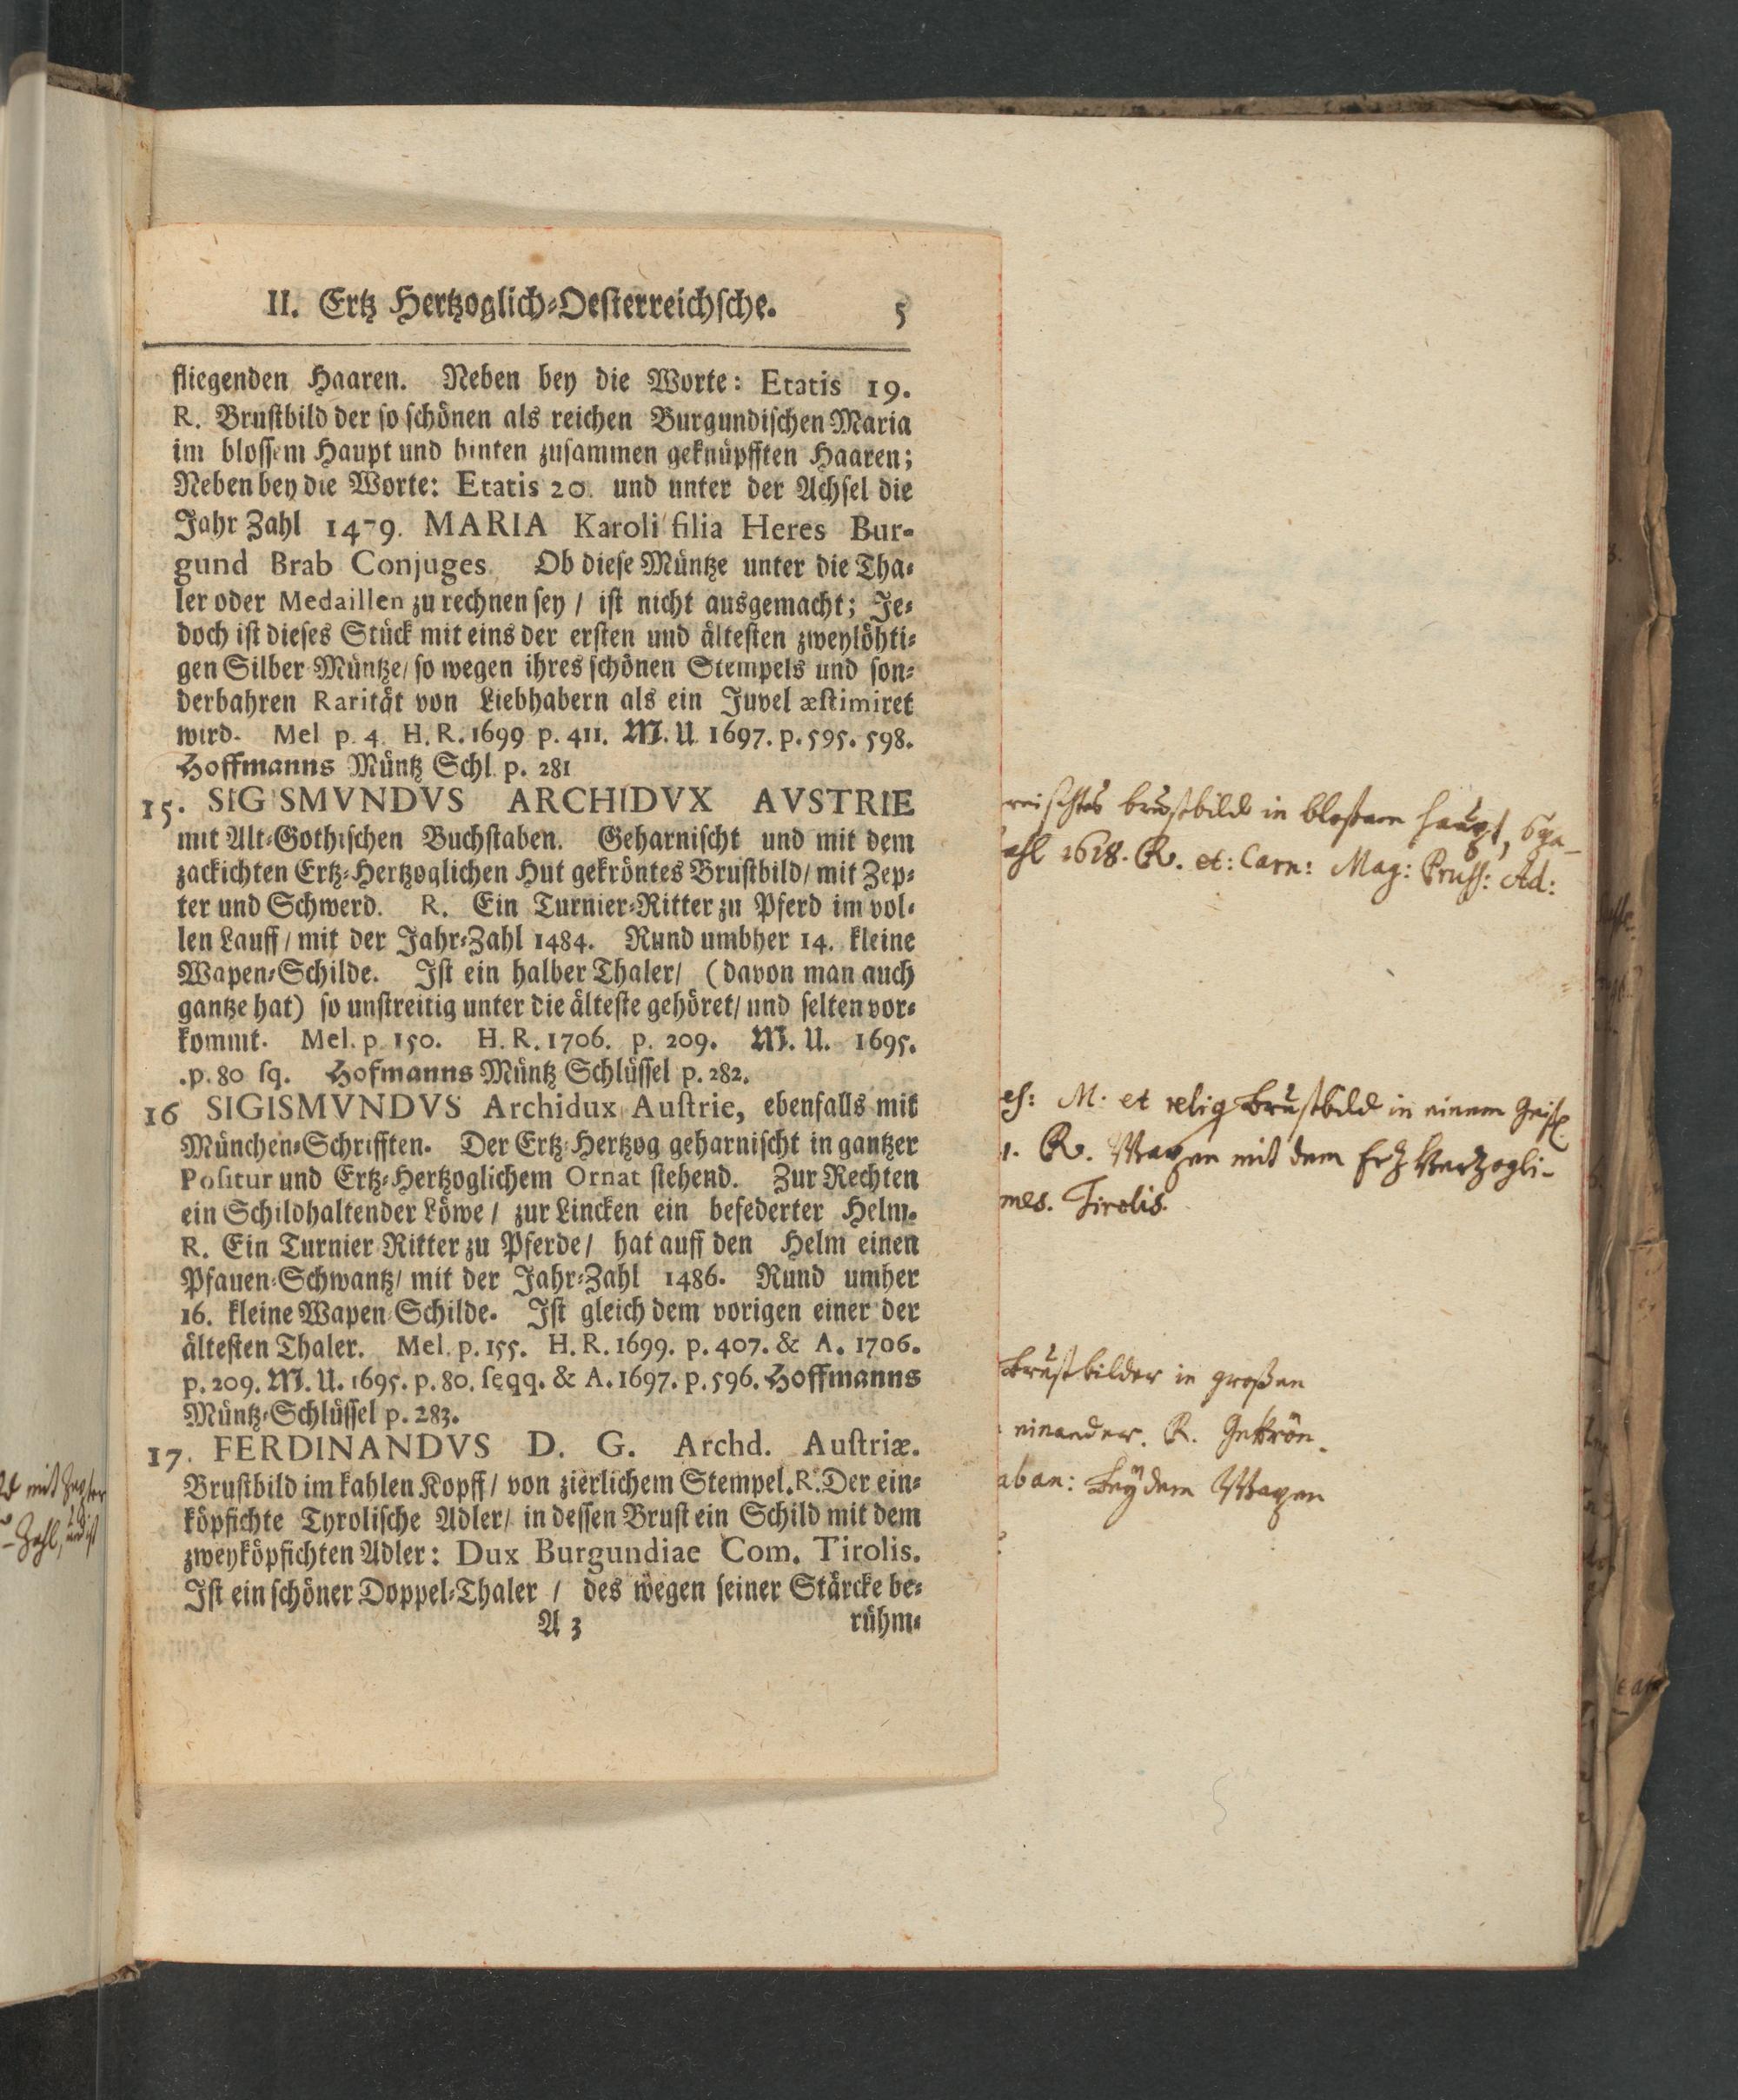 II. Ertz Hertzoglich-Oesterreichsche. 5
fliegenden Haaren. Neben bey die Worte: Etatis 19.
R. Brustbild der so schönen als reichen Burgundischen Maria
im blossem Haupt und hinten zusammen geknüpfften Haaren;
Neben bey die Worte: Etatis 20. und unter der Achsel die
Jahr Zahl 1479. MARIA Karoli filia Heres Bur-
gund Brab Conjuges. Ob diese Müntze unter die Tha-
ler oder Medaillen zu rechnen sey / ist nicht ausgemacht; Je-
doch ist dieses Stück mit eins der ersten und ältesten zweylöhti-
gen Silber-Müntze / so wegen ihres schönen Stempels und son-
derbahren Rarität von Liebhabern als ein Juvel æstimiret
wird. Mel p. 4. H. R. 1699 p. 411. M. U. 1697. p. 595. 598.
Hoffmanns Müntz Schl. p. 281
15. SIGISMVNDVS ARCHIDVX AVSTRIE
mit Alt-Gothischen Buchstaben. Geharnischt und mit dem
zackichten Ertz-Hertzoglichen Hut gekröntes Brustbild / mit Zep-
ter und Schwerd. R. Ein Turnier-Ritter zu Pferd im vol-
len Lauff / mit der Jahr-Zahl 1484. Rund umbher 14. kleine
Wapen-Schilde. Ist ein halber Thaler / (davon man auch
gantze hat) so unstreitig unter die älteste gehöret / und selten vor-
kommt. Mel. p. 150. H. R. 1706. p. 209. M. U. 1695.
.p. 80 sq. Hofmanns Müntz Schlüssel p. 282.
16 SIGISMVNDVS Archidux Austrie, ebenfalls mit
München-Schrifften. Der Ertz-Hertzog geharnischt in gantzer
Positur und Ertz-Hertzoglichem Ornat stehend. Zur Rechten
ein Schildhaltender Löwe / zur Lincken ein befederter Helm.
R. Ein Turnier-Ritter zu Pferde / hat auff den Helm einen
Pfauen-Schwantz / mit der Jahr-Zahl 1486. Rund umher
16. kleine Wapen Schilde. Ist gleich dem vorigen einer der
ältesten Thaler. Mel. p. 155. H. R. 1699. p. 407. & A. 1706.
p. 209. M. U. 1695. p. 80. seqq. & A. 1697. p. 596. Hoffmanns
Müntz-Schlüssel p. 283.
17. FERDINANDVS D. G. Archd. Austriæ.
Brustbild im kahlen Kopff / von zierlichem Stempel. R. Der ein-
köpfichte Tyrolische Adler / in dessen Brust ein Schild mit dem
zweyköpfichten Adler: Dux Burgundiae Com. Tirolis.
Ist ein schöner Doppel-Thaler / des wegen seiner Stärcke be-
A 3 rühm-
brustbild in bloßem haupt,
1618. R. et: Carn: Mag: Pruss: Ad:
M. et relig brustbild in einem
R. Wapen mit dem Ertz Hertzogli-
mes. Tirolis.
Brustbilder in großen
einander. R. Gekrön-
Beydem Wapen